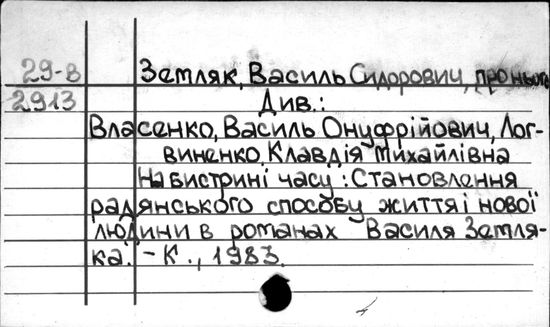 29-в Земляк, Василь Сидорович, про нього
2913 Див.:
Власенко, Василь Онуфрійович, Лог-
виненко, Клавдія Михайлівна
На бистрині часу : Становлення
радянського способу життя і нової
людини в романах Василя Земля-
ка. – К., 1983.